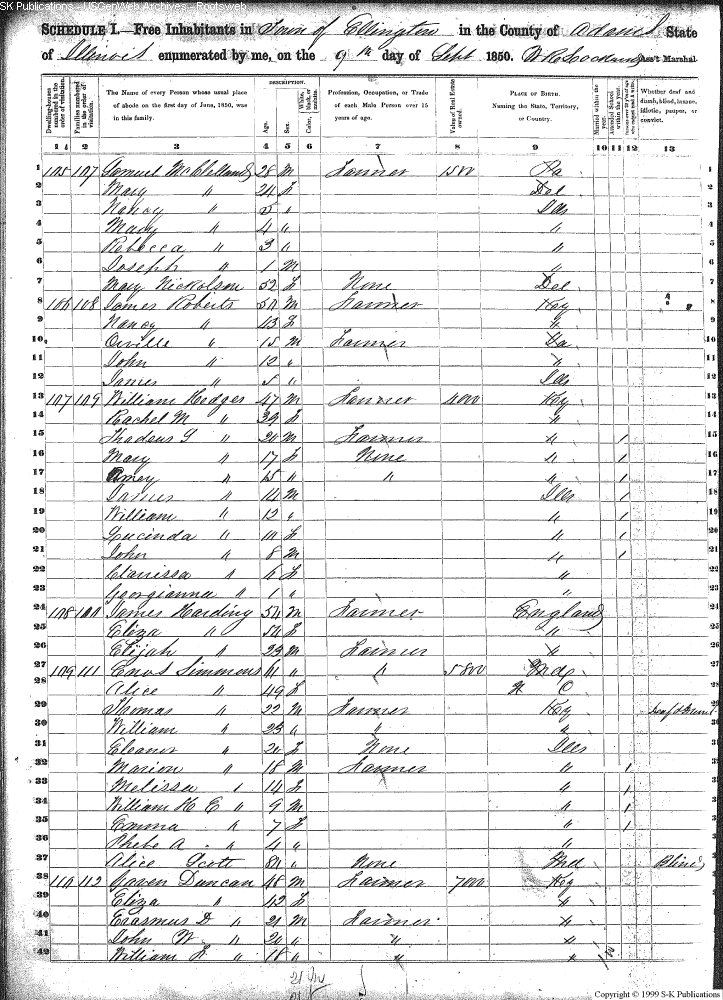 SK Publications - USGenWeb Archives - Rootsweb
SCHEDULE I.—Free Inhabitants in Town of Ellington in the County of Adams State
of Illinois enumerated by me, on the 9th day of Sept 1850. Ass't Marshal.
Dwelling-houses numbered in the order of visitation.
Families numbered in the order of visitation.
The Name of every Person whose usual place of abode on the first day of June, 1850, was in this family.
DESCRIPTION.
Age.
Sex.
Color, White, black, or mulatto.
Profession, Occupation, or Trade of each Male Person over 15 years of age.
Value of Real Estate owned.
PLACE OF BIRTH. Naming the State, Territory, or Country.
Married within the year.
Attended School within the year.
Whether deaf and dumb, blind, insane, idiotic, pauper, or convict.
1 2 3 4 5 6 7 8 9 10 11 12 13
1 105 107 Samuel McClelland 28 M Farmer 1500 Pa 1
2 Mary " 24 F Del 2
3 Nancy " 5 " Ills 3
4 Mary " 4 " " 4
5 Rebecca " 3 " " 5
6 Joseph " 1 M " 6
7 Mary Nickolson 52 F None Del 7
8 106 108 James Roberts 50 M Farmer Key 8
9 Nancy " 43 F " 9
10 Orville " 15 M Farmer 10
11 John " 12 " " 11
12 James " 5 " Ills 12
13 107 109 William Hedges 47 M Farmer 4000 Key 13
14 Rachel M " 39 F " 14
15 Thadeus G " 20 M Farmer " 1 15
16 Mary " 17 F None " 1 16
17 Amey " 15 " " " 1 17
18 James " 14 M Ills 1 18
19 William " 12 " " 1 19
20 Lucinda " 10 F " 1 20
21 John " 8 M " 1 21
22 Clarissa " 6 F " 22
23 Georgianna " 1 " " 23
24 108 110 James Harding 54 M Farmer England 24
25 Eliza " 50 F " 25
26 Elijah " 23 M Farmer " 26
27 109 111 Enos Simmons 61 " " 5800 Md 27
28 Alice " 49 F N C 28
29 Thomas " 22 M Farmer Key Deaf & Dumb 29
30 William " 23 " " " 30
31 Eleanor " 20 F None Ills 31
32 Marion " 18 M Farmer " 1 32
33 Melissa " 14 F " 1 33
34 William H E " 9 M " 1 34
35 Emma " 7 F " 1 35
36 Phebe A " 4 " " 36
37 Alice Scott 84 " None Md Blind 37
38 110 112 Duncan 48 M Farmer 7000 Key 38
39 Eliza " 42 F " 39
40 Erasmus D " 21 M Farmer " 40
41 John W " 20 " " " 41
42 William " 18 " " " 42
Copyright © 1999 S-K Publications